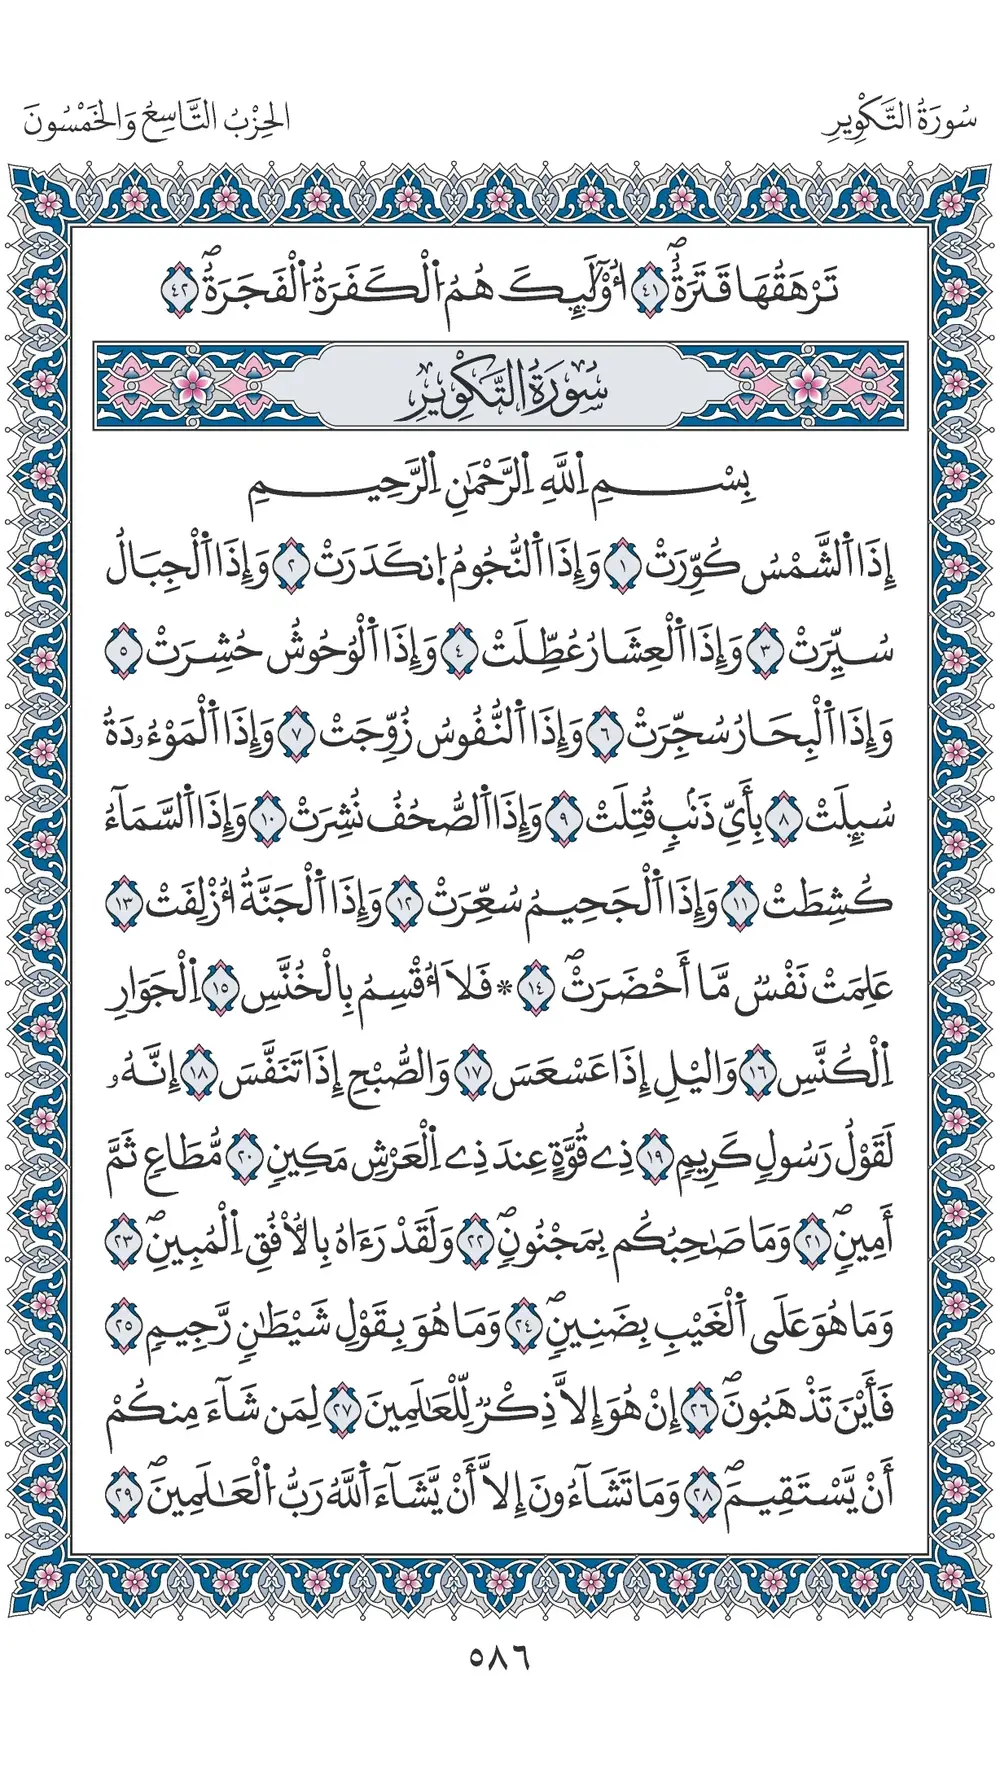 سُورَةُ التَّكْوِيرِ
الحِزْبُ التَّاسِعُ وَالخَمْسُونَ
تَرْهَقُهَا قَتَرَةٌۖ ٤١ اُوْلَٰٓئِكَ هُمُ اُ۬لْكَفَرَةُ اُ۬لْفَجَرَةُۖ ٤٢
سُورَةُ التَّكْوِيرِ
بِسْمِ اِ۬للَّهِ اِ۬لرَّحْمَٰنِ اِ۬لرَّحِيمِ
إِذَا اَ۬لشَّمْسُ كُوِّرَتْ ١ وَإِذَا اَ۬لنُّجُومُ اُ۪نكَدَرَتْ ٢ وَإِذَا اَ۬لْجِبَالُ
سُيِّرَتْ ٣ وَإِذَا اَ۬لْعِشَارُ عُطِّلَتْ ٤ وَإِذَا اَ۬لْوُحُوشُ حُشِرَتْ ٥
وَإِذَا اَ۬لْبِحَارُ سُجِّرَتْ ٦ وَإِذَا اَ۬لنُّفُوسُ زُوِّجَتْ ٧ وَإِذَا اَ۬لْمَوْءُۥدَةُ
سُئِلَتْ ٨ بِأَيِّ ذَنۢبٖ قُتِلَتْ ٩ وَإِذَا اَ۬لصُّحُفُ نُشِرَتْ ١٠ وَإِذَا اَ۬لسَّمَآءُ
كُشِطَتْ ١١ وَإِذَا اَ۬لْجَحِيمُ سُعِّرَتْ ١٢ وَإِذَا اَ۬لْجَنَّةُ أُزْلِفَتْ ١٣
عَلِمَتْ نَفْسٞ مَّا أَحْضَرَتْۖ ١٤ * فَلَا أُقْسِمُ بِالْخُنَّسِ ١٥ اِ۬لْجَوَارِ
اِ۬لْكُنَّسِ ١٦ وَاليْلِ إِذَا عَسْعَسَ ١٧ وَالصُّبْحِ إِذَا تَنَفَّسَ ١٨ إِنَّهُۥ
لَقَوْلُ رَسُولٖ كَرِيمٖ ١٩ ذِے قُوَّةٍ عِندَ ذِے اِ۬لْعَرْشِ مَكِينٖ ٢٠ مُّطَاعٖ ثَمَّ
أَمِينٖۖ ٢١ وَمَا صَٰحِبُكُم بِمَجْنُونٖۖ ٢٢ وَلَقَدْ رَءَاهُ بِالُاْفُقِ اِ۬لْمُبِينِۖ ٢٣
وَمَا هُوَ عَلَى اَ۬لْغَيْبِ بِضَنِينٖۖ ٢٤ وَمَا هُوَ بِقَوْلِ شَيْطَٰنٖ رَّجِيمٖ ٢٥
فَأَيْنَ تَذْهَبُونَۖ ٢٦ إِنْ هُوَ إِلَّا ذِكْرٞ لِّلْعَٰلَمِينَ ٢٧ لِمَن شَآءَ مِنكُمْ
أَنْ يَّسْتَقِيمَۖ ٢٨ وَمَا تَشَآءُونَ إِلَّا أَنْ يَّشَآءَ اَ۬للَّهُ رَبُّ اُ۬لْعَٰلَمِينَۖ ٢٩
٥٨٦